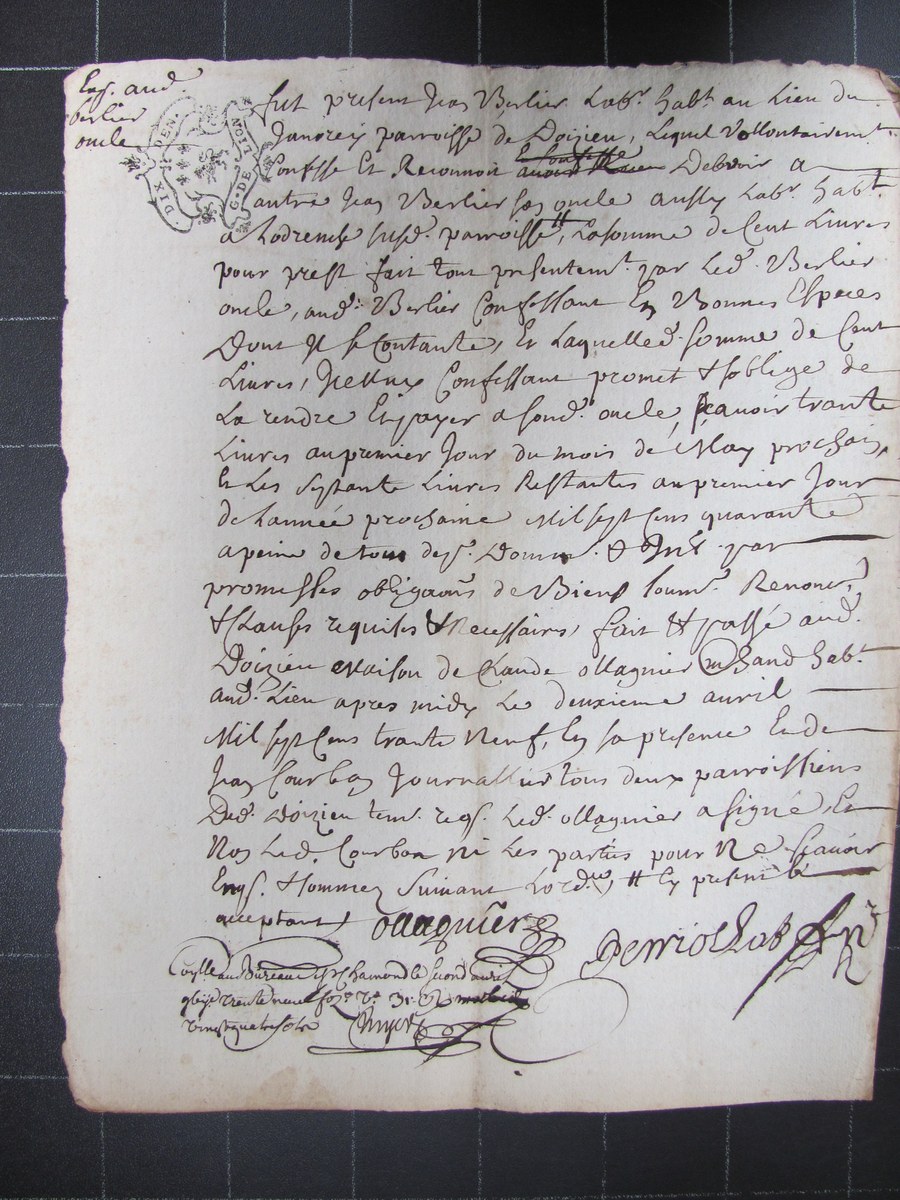 Exp. aud.
Berlier
oncle
DIX DEN.
G. DE LION
fut present Jean Berlier Labr. habt. au Lieu du
Janorey parroisse de Doizieu, Lequel Vollontairemt.
Confesse Et Reconnoit Debvoir a
autre Jean Berlier son oncle aussy Labr. habt.
a susd. parroisse #, La somme de Cent Livres
pour prest fait tout presentemt. par Led. Berlier
oncle, aud. Berlier Confessant En Bonnes Especes
Dont Il se Contante, Et Laquelle d. somme de Cent
Livres, Confessant promet & soblige de
La rendre Et payer a sond. oncle, scavoir trante
Livres au premier Jour du mois de May prochain,
Et Les septante Livres Restantes au premier Jour
de Lannée prochaine Mil sept Cens quarante
a peine de tous desp. Domm. & Intt. par
promesses obligaons. de Biens soumn. Renonc.
& Clauses requises & Necessaires, fait & passé aud.
Doizieu maison de Claude ollagnier mchand habt.
aud. Lieu apres midy Le deuxieme avril
Mil sept Cens trante Neuf, En sa presence Et de
Jean Courbon Journallier tous deux parroissiens
Ded. Doizieu tem. reqs. Led. ollagnier a signé Et
Non Led. Courbon ni Les parties pour Ne scavoir
Enqs. & sommez suivant Lord. # Cy present &
acceptant oullagnier
Perriolhat
Collé au Bureau de St Chamond le second avril
trente neuf fo. vo.
vingt quatre sols